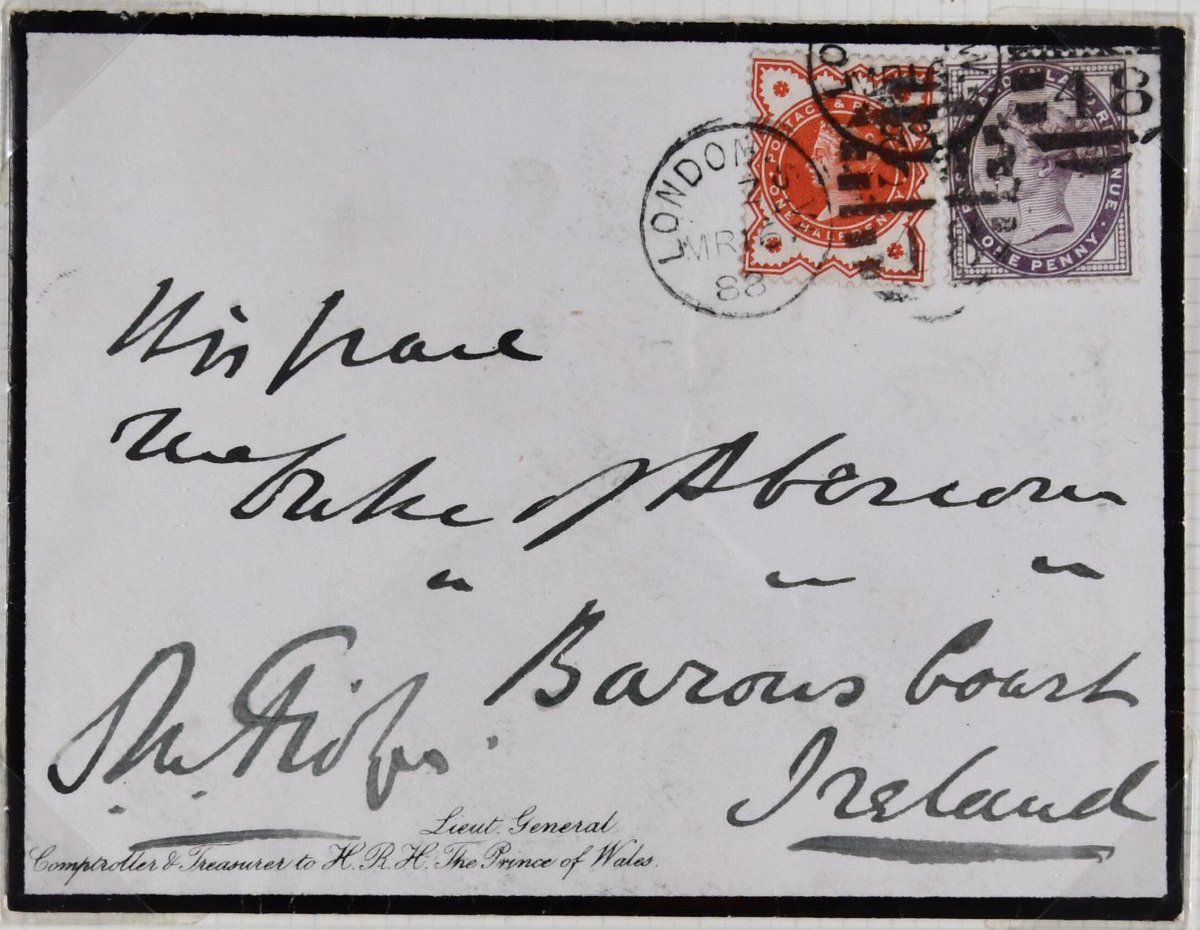 LONDON. S.W
7
MR 16
88
POSTAGE & REVENUE
ONE HALFPENNY
POSTAGE AND INLAND REVENUE
ONE PENNY
48
His Grace
The
Duke of Abercorn
Barons Court
Ireland
Lieut. General
Comptroller & Treasurer to H.R.H. The Prince of Wales.